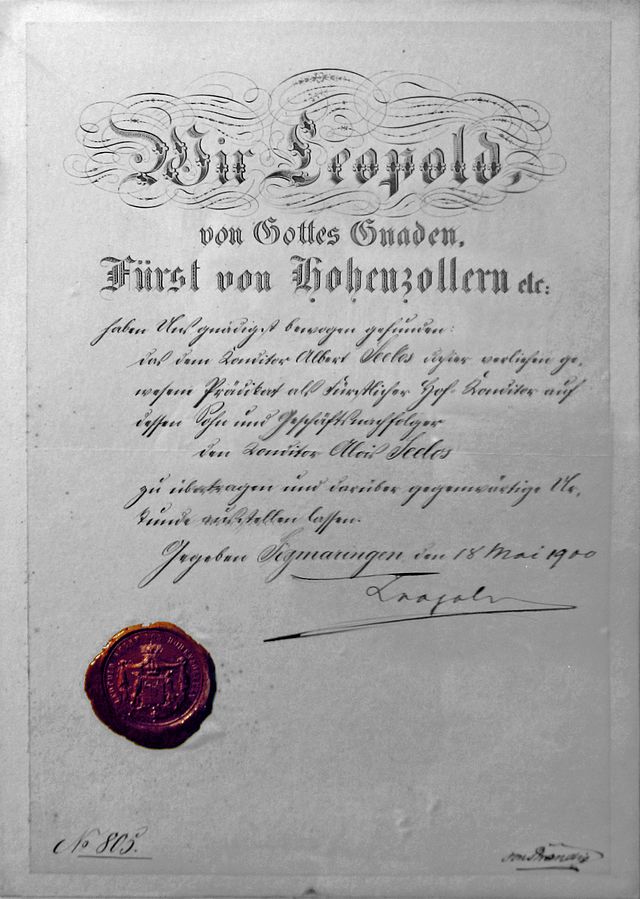 Wir Leopold,
von Gottes Gnaden,
Fürst von Hohenzollern etc:
haben Uns gnädigst bewogen gefunden:
das dem Konditor Albert Seelos verliehen ge-
wesene Prädikat als Fürstlicher Hof-Konditor auf
dessen Sohn und Geschäftsnachfolger
den Konditor Alois Seelos
zu übertragen und darüber gegenwärtige Ur-
kunde ausstellen lassen.
Gegeben Sigmaringen den 18 Mai 1900
Leopold
No 805.